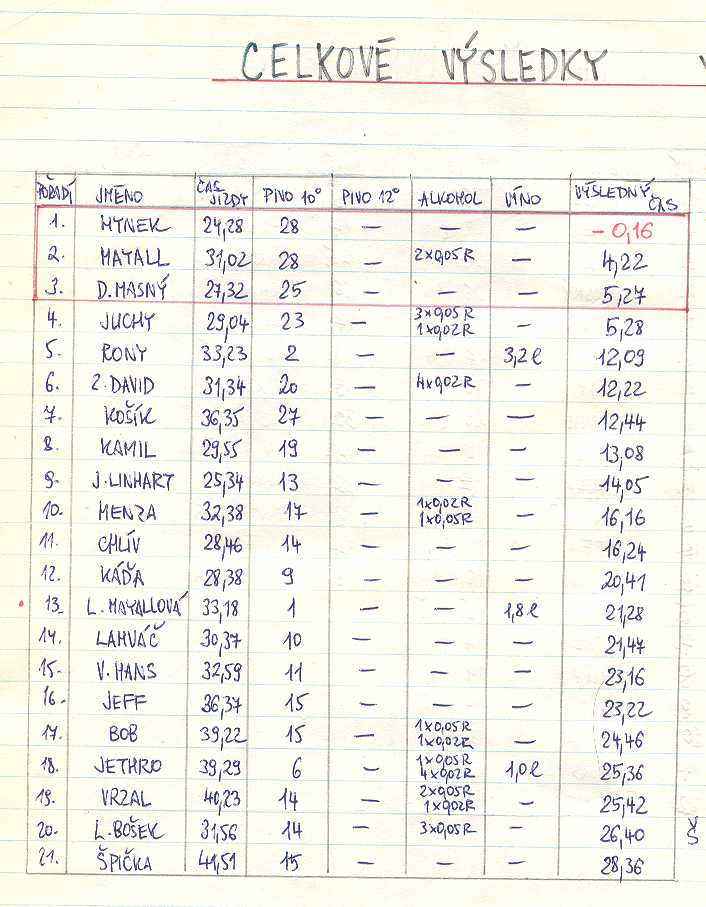 CELKOVÉ VÝSLEDKY
POŘADÍ JMÉNO ČAS JÍZDY PIVO 10° PIVO 12° ALKOHOL VÍNO VÝSLEDNÝ ČAS
1. HYNEK 24,28 28 — — — — -0,16
2. MAYALL 31,02 28 — 2x0,05R — 4,22
3. D.MASNÝ 27,32 25 — — — 5,27
4. JUCHY 29,04 23 — 3x0,05R 1x0,02R — 5,28
5. RONY 33,23 2 — — 3,2l 12,09
6. Z.DAVID 31,34 20 — 4x0,02R — 12,22
7. KOŠÍK 36,35 27 — — — 12,44
8. KAMIL 29,55 19 — — — 13,08
9. J.LINHART 25,34 13 — — — 14,05
10. MENZA 32,38 17 — 1x0,02R 1x0,05R — 16,16
11. CHLÍV 28,46 14 — — — 16,24
12. KÁĎA 28,38 9 — — — 20,41
13. L.MAYALLOVÁ 33,18 1 — — 1,8l 21,28
14. LAHVÁČ 30,37 10 — — — 21,47
15. V.HANS 32,59 11 — — — 23,16
16. JEFF 36,37 15 — — — 23,22
17. BOB 39,22 15 — 1x0,05R 1x0,02R — 24,46
18. JETHRO 39,29 6 — 1x0,05R 4x0,02R 1,0l 25,36
19. VRZAL 40,23 14 — 2x0,05R 1x0,02R — 25,42
20. L.BOŠEK 31,56 14 — 3x0,05R — 26,40
21. ŠPIČKA 41,51 15 — — — 28,36